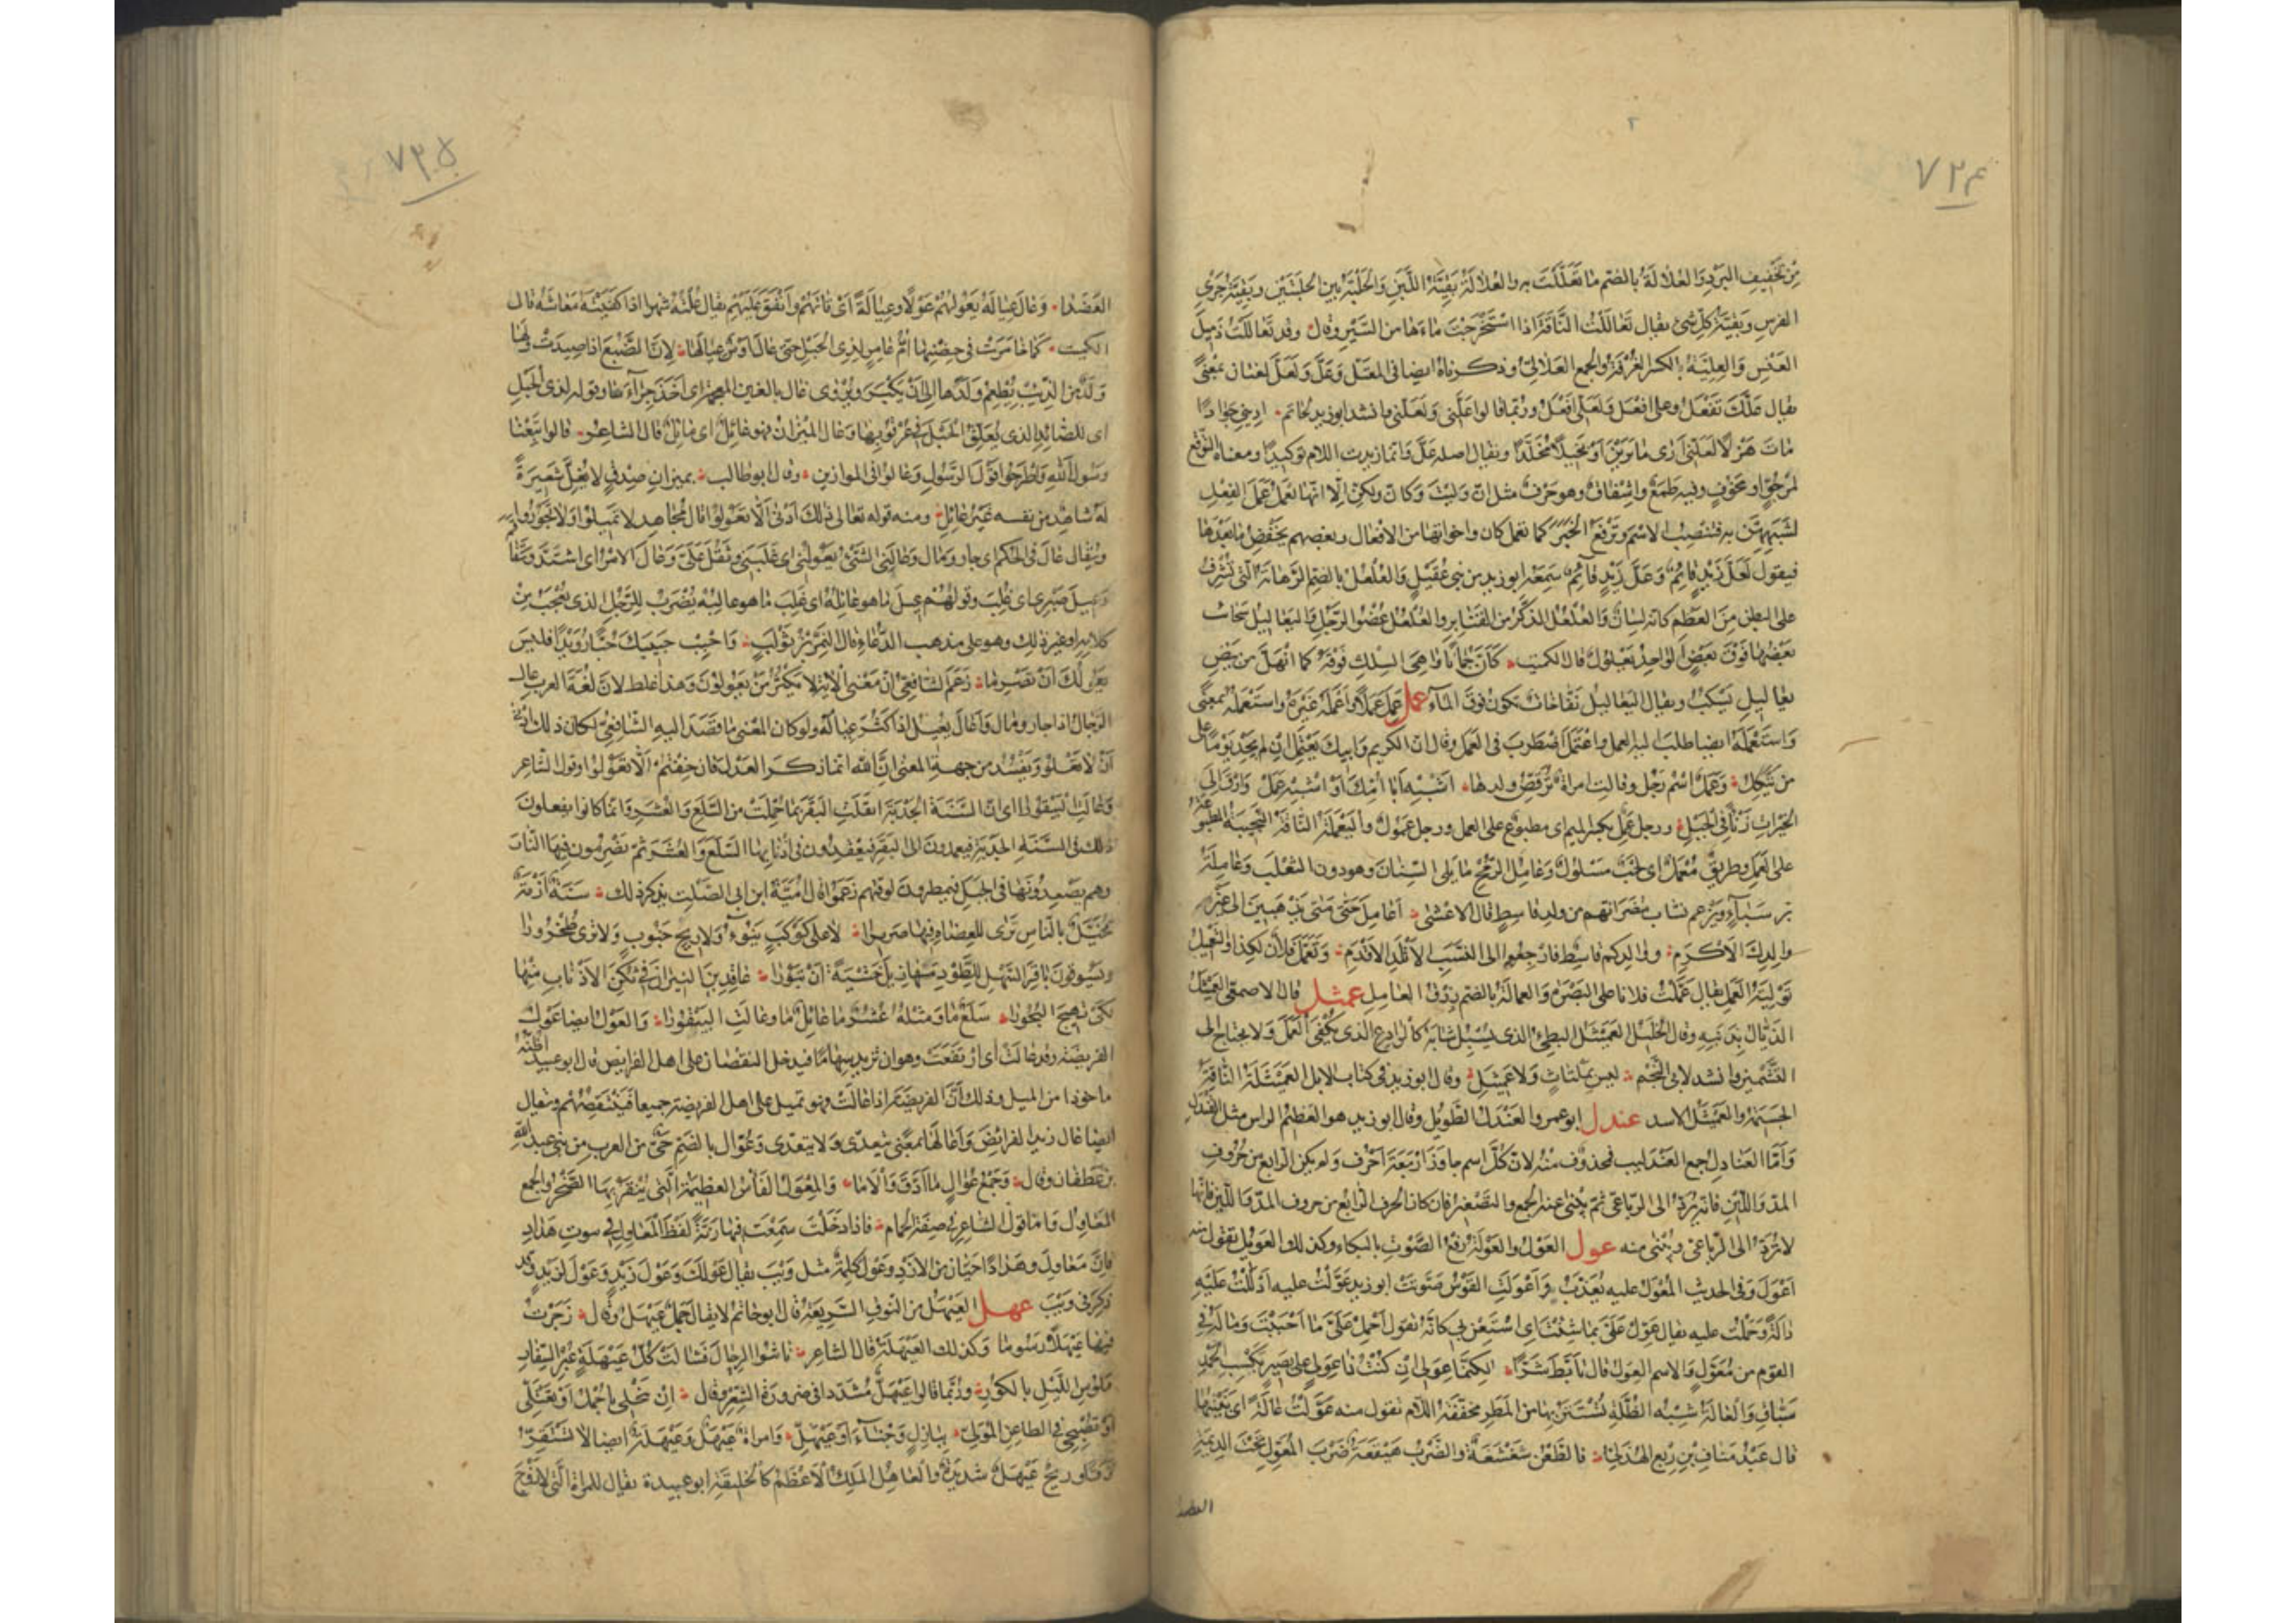 ٧٣٤
من تخفيف البرد والعلالة بالضم ما تعللت به والعلالة بقية اللبن والحلبة بين الحلبتين وبقية جري
الفرس وبقية كل شئ يقال تعاللت الناقة اذا استخرجت ماعندها من السير وقال وقد تعاللت ذميل
العنس والعلية بالكسر الغرفة والجمع العلالي وذكرناه ايضا في المعتل وعل ولعل لغتان بمعنى
يقال علك تفعل وعلي افعل ولعلي افعل وربما قالوا علني ولعلني وانشد ابو زيد لحاتم اريني جوادا
مات هزلا لعلني ارى ما ترين او بخيلا مخلدا ويقال اصله عل وانما زيدت اللام توكيدا ومعناه التوقع
لمرجو او مخوف وفيه طمع واشفاق وهو حرف مثل ان وليت وكان ولكن الا انها تعمل عمل الفعل
لشبههن به فتنصب الاسم وترفع الخبر كما تعمل كان واخواتها من الافعال وبعضهم يخفض ما بعدها
فيقول لعل زيد قائم وعل زيد قائم سمعه ابو زيد من بني عقيل والعلعل بالضم الرهابة التي تشرف
على البطن من العظم كانه لسان والعلعل الذكر من القنابر والعلعل عضو الرجل واليعاليل سحاب
بعضها فوق بعض الواحد يعلول قال الكميت كان جمانا واهي السلك فوقه كما انهل من بيض
يعاليل تسكب ويقال اليعاليل نفاخات تكون فوق الماء عمل عمل عملا واعمله غيره واستعمله بمعنى
واستعمله ايضا طلب اليه العمل واعتمل اضطرب في العمل وقال ان الكريم وابيك يعتمل ان لم يجد يوما على
من يتكل وعمل اسم رجل وقالت امراة ترقص ولدها اشبه ابا امك او اشبه عمل وارق الى
الخيرات زنأ في الجبل ورجل عمل بكسر الميم اي مطبوع على العمل ورجل عمول واليعملة الناقة النجيبة المطبوعة
على العمل وطريق معمل اي لحب مسلوك وعامل الرمح ما يلي السنان وهو دون الثعلب وعاملة
بن سباء ويزعم نساب مضر انهم من ولد قاسط قال الاعشى اعامل حتى متى تذهبين الى غير
والدك الاكرم ووالدكم قاسط فارجعوا الى النسب الاتلد الاقدم وتعمل فلان لكذا والتعميل
تولية العمل يقال عملت فلانا على البصرة والعمالة بالضم رزق العامل عمثل قال الاصمعي العميثل
الذيال بذنبه وقال الخليل العميثل البطئ الذي يسبل ثيابه كالوادع الذي يكفى العمل ولا يحتاج الى
التشمير وانشد لابي النجم ليس بملتاث ولا عميثل وقال ابو زيد في كتاب الابل العميثلة الناقة
الجسيمة والعميثل الاسد عندل ابو عمرو العندل الطويل وقال ابو زيد هو العظيم الراس مثل القندل
واما العنادل جمع العندليب فمحذوف منه لان كل اسم جاوز اربعة احرف ولم يكن الرابع من حروف
المد واللين فانه يرد الى الرباعي ثم يبنى منه الجمع والتصغير فان كان الحرف الرابع من حروف المد واللين فانها
لا ترد الى الرباعي ويبنى منه عول العول والعولة رفع الصوت بالبكاء وكذلك العويل تقول منه
اعول وفي الحديث المعول عليه يعذب واعولت القوس صوتت ابو زيد عولت عليه ادللت عليه
دالة وحملت عليه يقال عول على بما شئت اي استعن بي كانه يقول احمل على ما احببت وماله في
القوم من معول والاسم العول قال تابط شرا لكنما عولي ان كنت ذا عول على بصير بكسب الحمد
سباق والعالة شبه الظلة يستتر بها من المطر مخففة اللام تقول منه عولت عالة اي بنيتها
قال عبد مناف بن ربع الهذلي فالطعن شغشغة والضرب هيقعة ضرب المعول تحت الديمة
العضدا
٧٣٥
العضدا وعال عياله يعولهم عولا وعيالة اي قاتهم وانفق عليهم يقال علته شهرا اذا كفيته معاشه قال
الكميت كما خامرت في حضنها ام عامر لذي الحبل حتى عال اوس عيالها لان الضبع اذا صيدت ولها
ولد من الذئب يطعم ولدها الى ان يكبر ويروى غال بالغين المعجمة اي اخذ جراءها وقوله لذي الحبل
اي للصائد الذي يعلق الحبل في عرقوبها وعال الميزان فهو عائل اي مائل قال الشاعر قالوا تبعنا
رسول الله واطرحوا قول الرسول وعالوا في الموازين وقال ابو طالب بميزان صدق لا يغل شعيرة
له شاهد من نفسه غير عائل ومنه قوله تعالى ذلك ادنى الا تعولوا قال مجاهد لا تميلوا ولا تجوروا
ويقال عال في الحكم اي جار ومال وعالني الشئ يعولني اي غلبني وثقل علي وعال الامر اي اشتد وتفاقم
وعيل صبري اي غلب وقولهم عيل ما هو عائله اي غلب ما هو غالبه يضرب للرجل الذي يعجب من
كلامه او غير ذلك وهو على مذهب الدعاء قال النمر بن تولب واحبب حبيبك حبا رويدا فليس
يعولك ان تصرما زعم الشافعي ان معنى الاية لا يكثر من تعولون وهذا غلط لان لغة العرب عال
الرجل اذا جار ومال واعال يعيل اذا كثر عياله ولو كان المعنى ما قصد اليه الشافعي لكان ذلك ادنى
ان لا تعيلوا ويفسد من جهة المعنى ان الله انما ذكر العدل فان خفتم الا تعولوا وقول الشاعر
وعالت البيقورا اي ان السنة الجدبة اثقلت البقر بما حملت من السلع والعشر وانما كانوا يفعلون
ذلك في السنة الجدبة فيعمدون الى البقر فيعقدون في اذنابها السلع والعشر ثم يضرمون فيها النار
وهم يصعدونها في الجبل فيمطرون لوقتهم زعموا قال امية ابن ابي الصلت يذكر ذلك سنة ازمة
تخيل بالناس ترى للعضاه فيها صريرا لا على كوكب ينوء ولا ريح جنوب ولا ترى طخرورا
ويسوقون باقر السهل للطود مهازيل خشية ان تبورا عاقدين النيران في ثكن الاذناب منها
لكى تهيج البحورا سلع ما ومثله عشر ما عائل ما وعالت البيقورا والعول ايضا عول
الفريضة وقد عالت اي ارتفعت وهو ان تزيد سهاما فيدخل النقصان على اهل الفرايض قال ابو عبيد اظنه
ماخوذا من الميل وذلك ان الفريضة اذا عالت فهو تميل على اهل الفريضة جميعا فتنتقصهم ويقال
ايضا عال زيد الفرائض واعالها بمعنى يتعدى ولا يتعدى وعوال بالضم حي من العرب من بني عبد الله
بن غطفان وقال وجمع عوال ما ادق والاما والمعول الفأس العظيمة التي ينقر بها الصخر والجمع
المعاول واما قول الشاعر في صفة الحمام فاذا دخلت سمعت فيها رنة لغط المعاول في بيوت هداد
فان معاول وهدادا حيان من الازد وعول كلمة مثل ويب يقال عولك وعول زيد وعول لزيد وقد
ذكر في ويب عهل العيهل من النوق السريعة قال ابو حاتم لا يقال جمل عيهل وقال زجرت
فيها عيهلا رسوما وكذلك العيهلة قال الشاعر ناشوا الرجال فسالت كل عيهلة عبر السفار
ملوس الليل بالكور وربما قالوا عيهل مشددا في ضرورة الشعر وقال ان تبخلي يا جمل او تعتلى
او تصبحي في الظاعن المولي ببازل وجناء او عيهل وامراة عيهل وعيهلة ايضا لا تستقر
نزقا وريح عيهل شديدة والعاهل الملك الاعظم كالخليفة ابو عبيدة يقال للمراة التي لا زوج